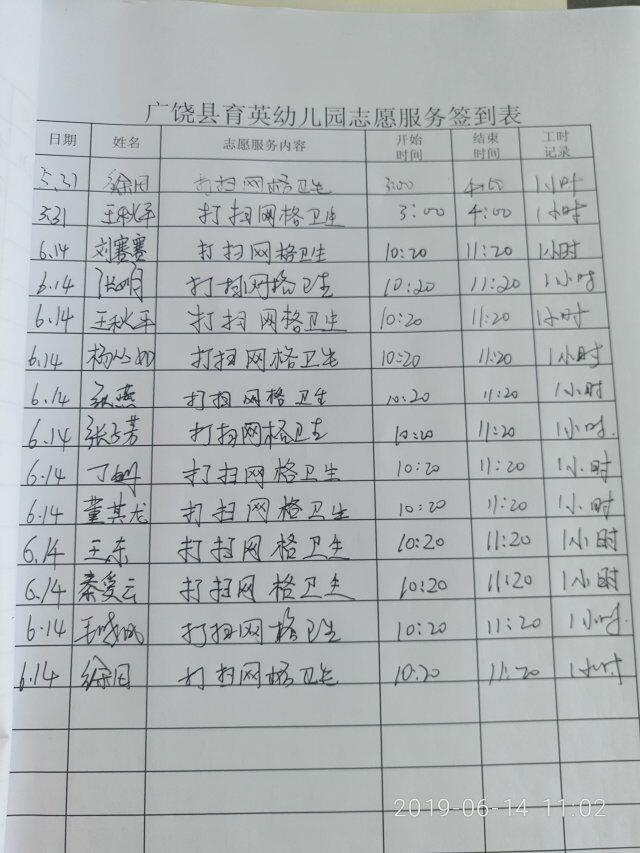 广饶县育英幼儿园志愿服务签到表
日期 姓名 志愿服务内容 开始时间 结束时间 工时记录
5.31 徐田 打扫网格卫生 3:00 4:00 1小时
5.31 王秋平 打扫网格卫生 3:00 4:00 1小时
6.14 刘赛赛 打扫网格卫生 10:20 11:20 1小时
6.14 打扫网格卫生 10:20 11:20 1小时
6.14 王秋平 打扫网格卫生 10:20 11:20 1小时
6.14 打扫网格卫生 10:20 11:20 1小时
6.14 张燕 打扫网格卫生 10:20 11:20 1小时
6.14 打扫网格卫生 10:20 11:20 1小时.
6.14 打扫网格卫生 10:20 11:20 1小时
6.14 董其龙 打扫网格卫生 10:20 11:20 1小时
6.14 王东 打扫网格卫生 10:20 11:20 1小时
6.14 秦爱云 打扫网格卫生 10:20 11:20 1小时
6.14 打扫网格卫生 10:20 11:20 1小时.
6.14 徐田 打扫网格卫生 10:20 11:20 1小时
2019-06-14 11:02